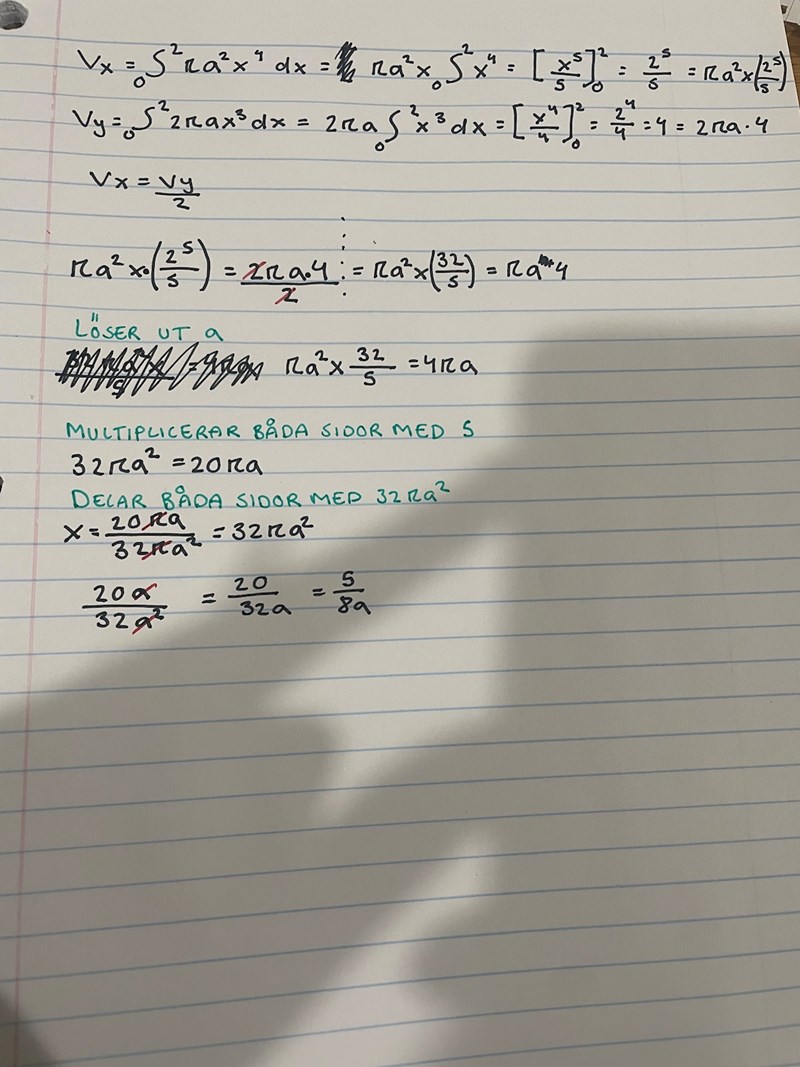 Vx = ₀∫² πa²x⁴ dx = πa² x ₀∫² x⁴ = [x⁵/5]₀² = 2⁵/5 = πa² x (2⁵/5)
Vy = ₀∫² 2πax³ dx = 2πa ₀∫² x³ dx = [x⁴/4]₀² = 2⁴/4 = 4 = 2πa · 4
Vx = Vy/2
πa² x · (2⁵/5) = 2πa·4/2 = πa² x (32/5) = πa 4
LÖSER UT a
πa² x 32/5 = 4πa
MULTIPLICERAR BÅDA SIDOR MED 5
32πa² = 20πa
DELAR BÅDA SIDOR MED 32πa²
x = 20πa/32πa² = 32πa²
20a/32a² = 20/32a = 5/8a